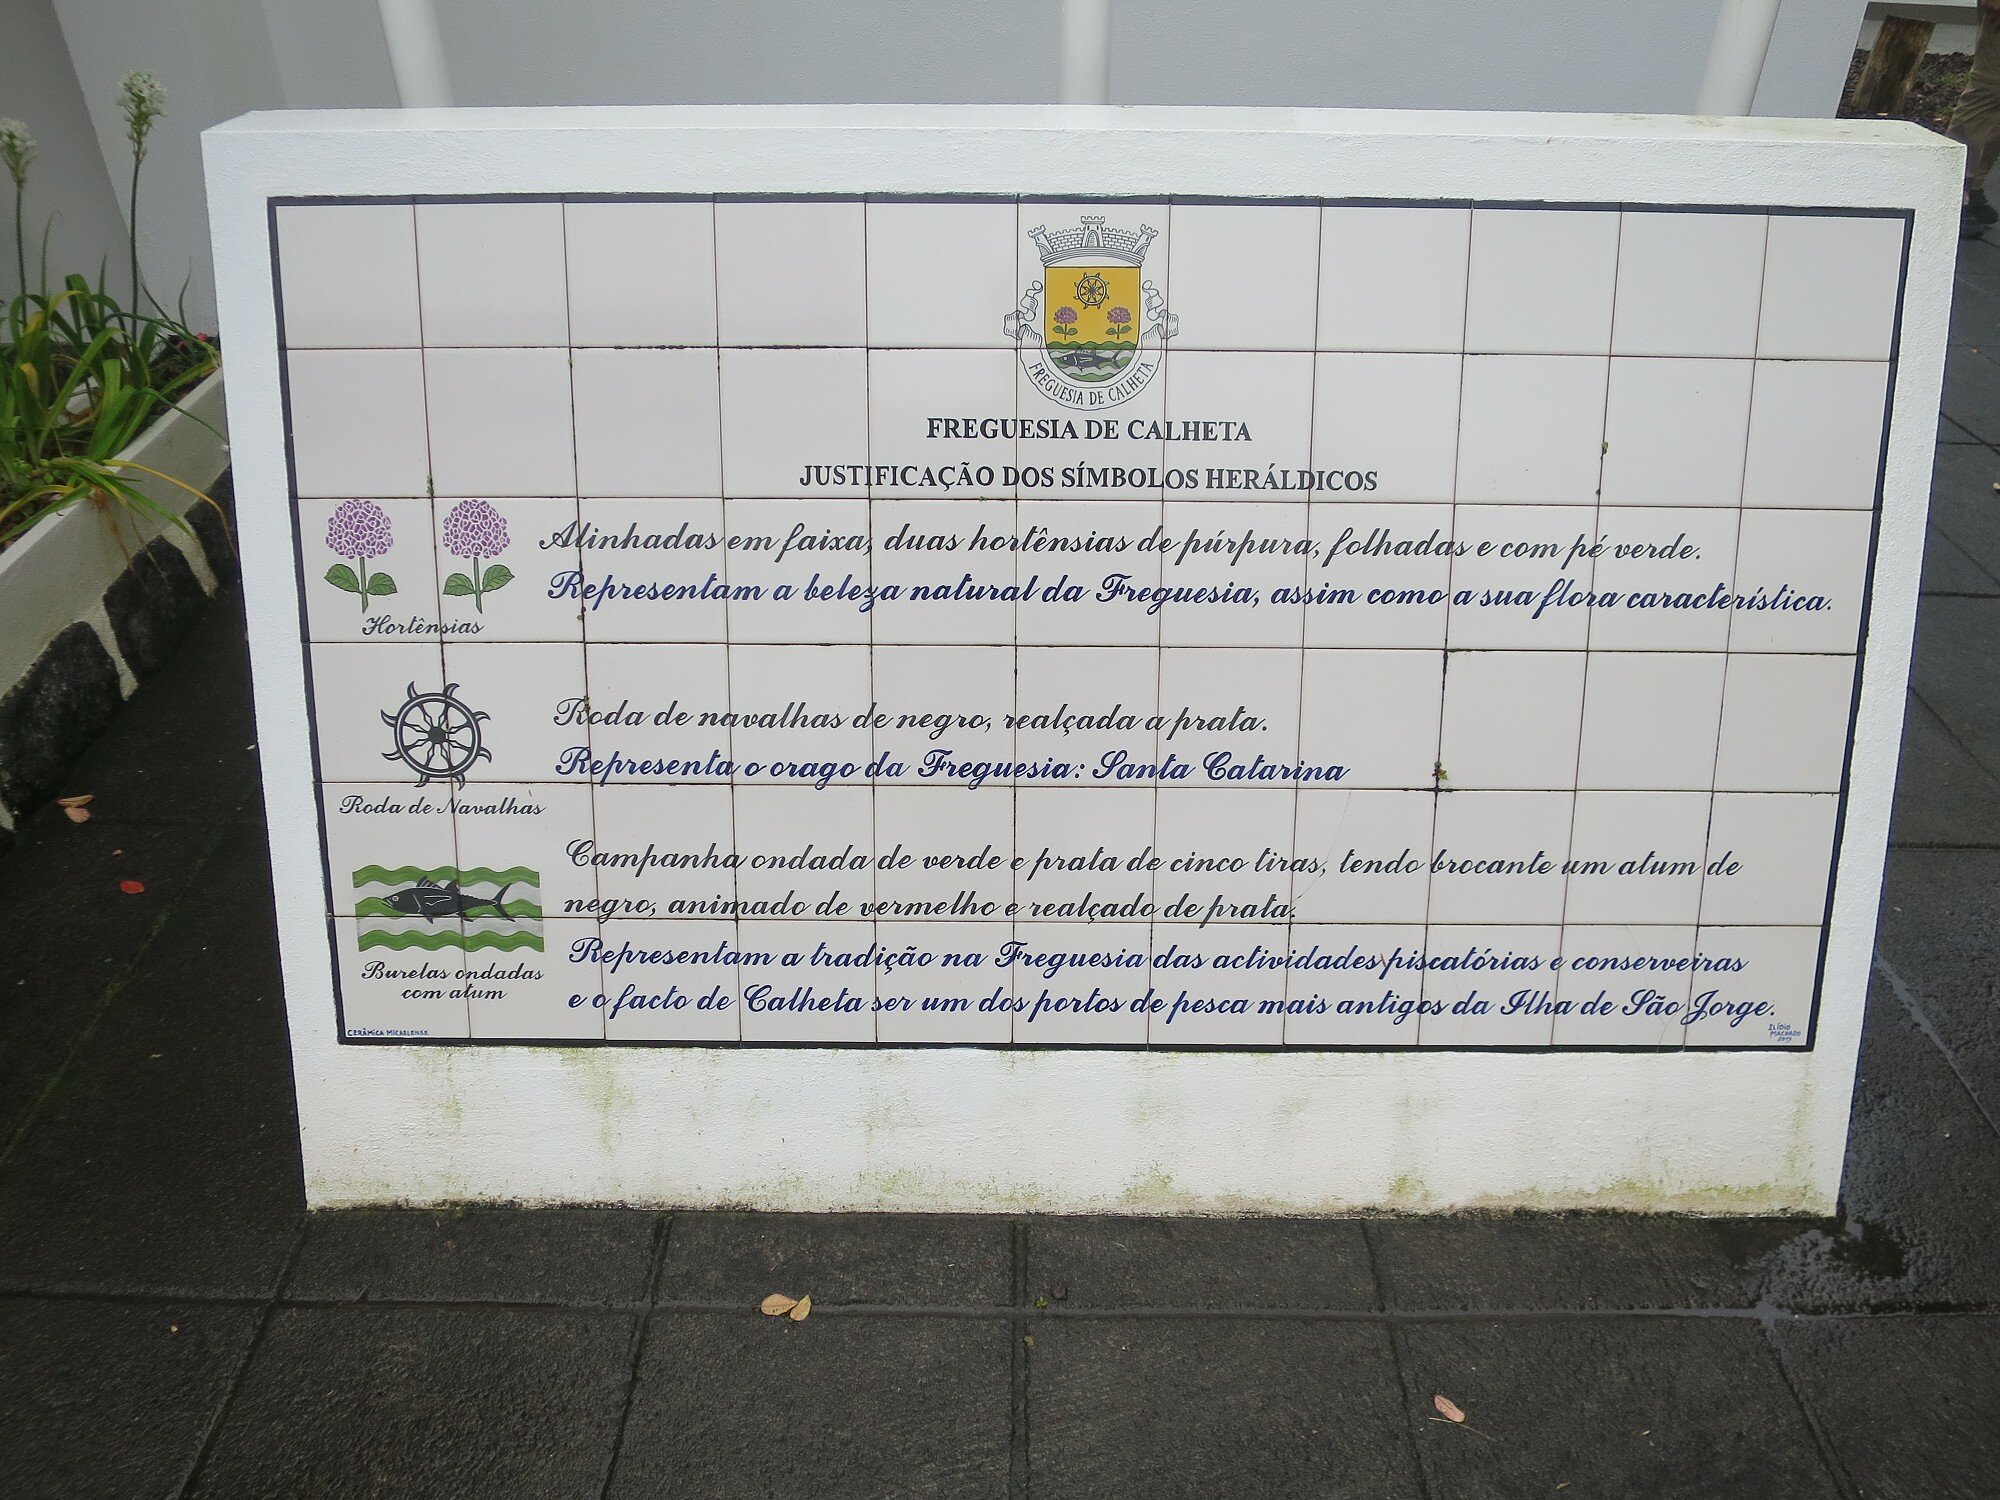 FREGUESIA DE CALHETA
FREGUESIA DE CALHETA
JUSTIFICAÇÃO DOS SÍMBOLOS HERÁLDICOS
Alinhadas em faixa, duas hortênsias de púrpura, folhadas e com pé verde.
Representam a beleza natural da Freguesia, assim como a sua flora característica.
Hortênsias
Roda de navalhas de negro, realçada a prata.
Representa o orago da Freguesia: Santa Catarina
Roda de Navalhas
Campanha ondada de verde e prata de cinco tiras, tendo brocante um atum de
negro, animado de vermelho e realçado de prata.
Representam a tradição na Freguesia das actividades piscatórias e conserveiras
e o facto de Calheta ser um dos portos de pesca mais antigos da Ilha de São Jorge.
Burelas ondadas
com atum
CERÂMICA MICAELENSE
ILÍDIO
MACHADO
2013